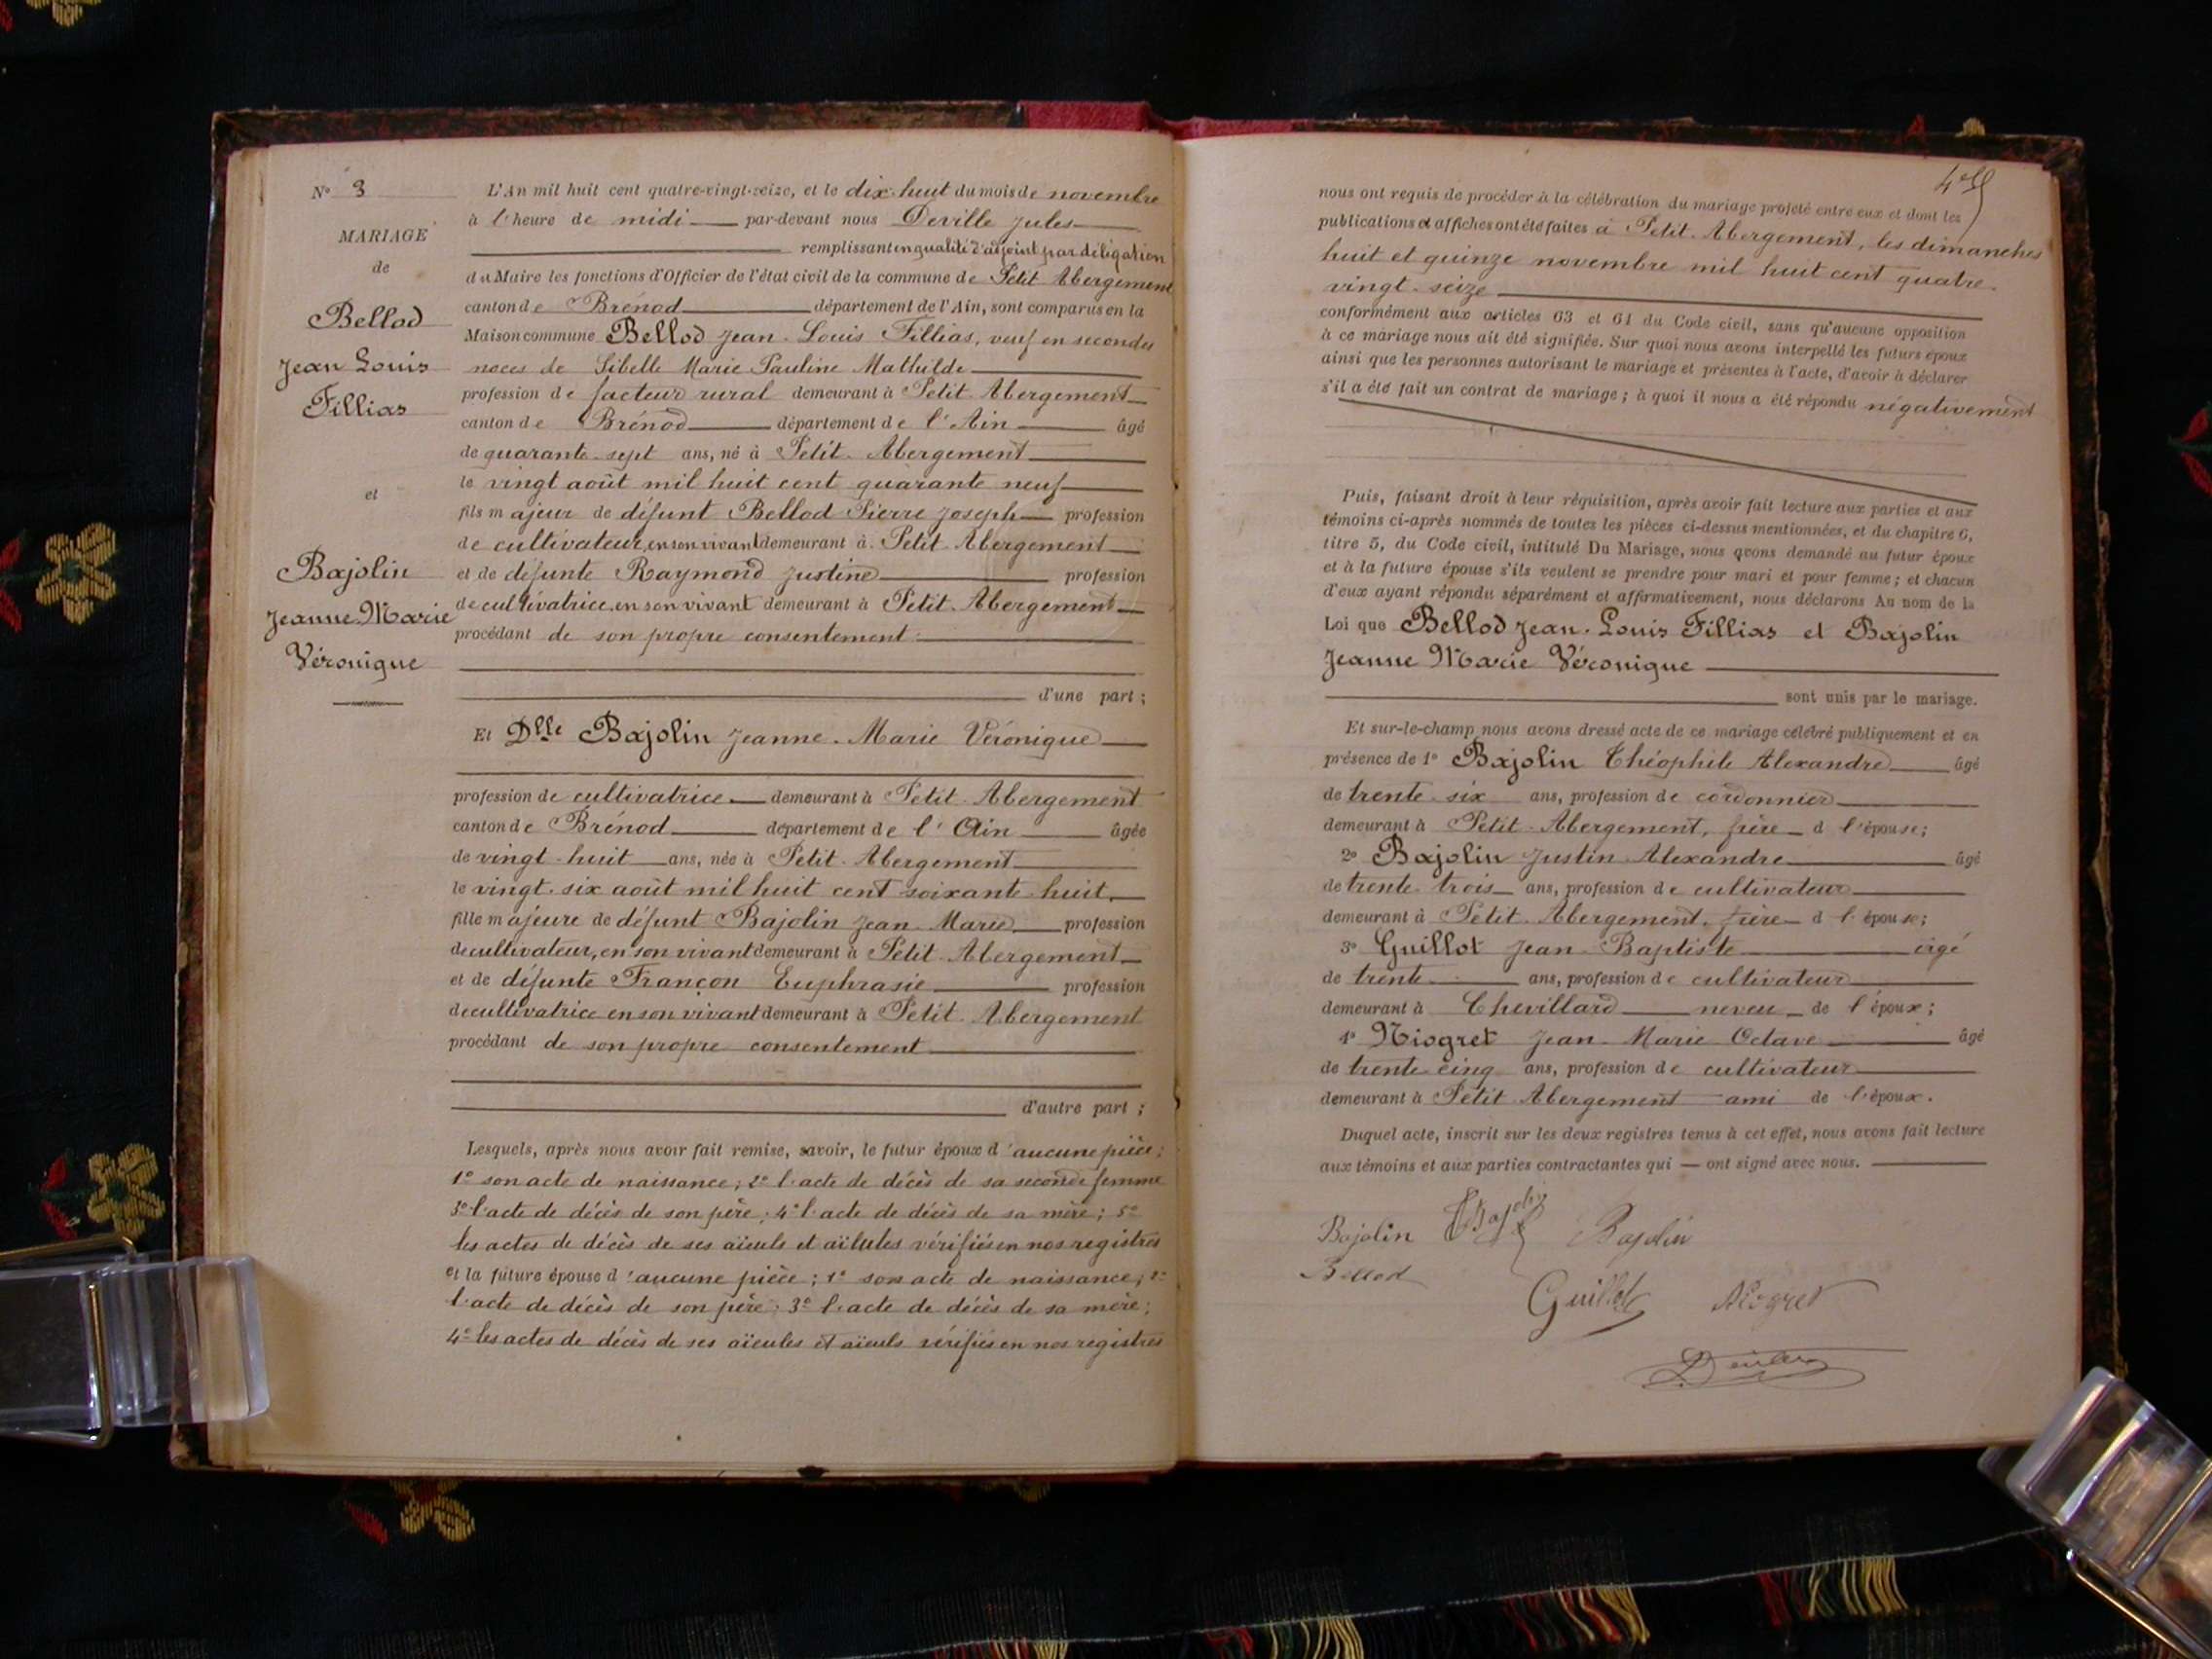 N° 3
MARIAGE
de
Bellod
Jean Louis
Fillias
et
Bajolin
Jeanne Marie
Véronique
L'An mil huit cent quatre-vingt-seize, et le dix-huit du mois de novembre
à l'heure de midi par-devant nous Deville Jules
remplissant en qualité d'adjoint par délégation
du Maire les fonctions d'Officier de l'état civil de la commune de Petit Abergement
canton de Brénod département de l'Ain, sont comparus en la
Maison commune Bellod Jean-Louis Fillias, veuf en secondes
noces de Sibelle Marie Pauline Mathilde
profession de facteur rural demeurant à Petit-Abergement
canton de Brénod département de l'Ain âgé
de quarante-sept ans, né à Petit-Abergement
le vingt août mil huit cent quarante neuf
fils majeur de défunt Bellod Pierre Joseph profession
de cultivateur, en son vivant demeurant à Petit-Abergement
et de défunte Raymond Justine profession
de cultivatrice, en son vivant demeurant à Petit-Abergement
procédant de son propre consentement
d'une part ;
Et Dlle Bajolin Jeanne-Marie Véronique
profession de cultivatrice demeurant à Petit-Abergement
canton de Brénod département de l'Ain âgée
de vingt-huit ans, née à Petit-Abergement
le vingt-six août mil huit cent soixante-huit,
fille majeure de défunt Bajolin Jean-Marie profession
de cultivateur, en son vivant demeurant à Petit-Abergement
et de défunte Françon Euphrasie profession
de cultivatrice en son vivant demeurant à Petit-Abergement
procédant de son propre consentement
d'autre part ;
Lesquels, après nous avoir fait remise, savoir, le futur époux d'aucune pièce ;
1° son acte de naissance ; 2° l'acte de décès de sa seconde femme
3° l'acte de décès de son père ; 4° l'acte de décès de sa mère ; 5°
les actes de décès de ses aïeuls et aïeules vérifiés en nos registres
et la future épouse d'aucune pièce ; 1° son acte de naissance ; 2°
l'acte de décès de son père ; 3° l'acte de décès de sa mère ;
4° les actes de décès de ses aïeules et aïeuls vérifiés en nos registres
nous ont requis de procéder à la célébration du mariage projeté entre eux et dont les
publications et affiches ont été faites à Petit-Abergement, les dimanches
huit et quinze novembre mil huit cent quatre-
vingt-seize
conformément aux articles 63 et 64 du Code civil, sans qu'aucune opposition
à ce mariage nous ait été signifiée. Sur quoi nous avons interpellé les futurs époux
ainsi que les personnes autorisant le mariage et présentes à l'acte, d'avoir à déclarer
s'il a été fait un contrat de mariage ; à quoi il nous a été répondu négativement
Puis, faisant droit à leur réquisition, après avoir fait lecture aux parties et aux
témoins ci-après nommés de toutes les pièces ci-dessus mentionnées, et du chapitre 6,
titre 5, du Code civil, intitulé Du Mariage, nous avons demandé au futur époux
et à la future épouse s'ils veulent se prendre pour mari et pour femme ; et chacun
d'eux ayant répondu séparément et affirmativement, nous déclarons Au nom de la
Loi que Bellod Jean-Louis Fillias et Bajolin
Jeanne Marie Véronique
sont unis par le mariage.
Et sur-le-champ nous avons dressé acte de ce mariage célébré publiquement et en
présence de 1° Bajolin Théophile Alexandre âgé
de trente-six ans, profession de cordonnier
demeurant à Petit-Abergement, frère d l'épouse ;
2° Bajolin Justin Alexandre âgé
de trente-trois ans, profession de cultivateur
demeurant à Petit-Abergement, frère d l'épouse ;
3° Guillot Jean-Baptiste âgé
de trente ans, profession de cultivateur
demeurant à Chevillard neveu de l'époux ;
4° Niogret Jean-Marie Octave âgé
de trente-cinq ans, profession de cultivateur
demeurant à Petit-Abergement ami de l'époux.
Duquel acte, inscrit sur les deux registres tenus à cet effet, nous avons fait lecture
aux témoins et aux parties contractantes qui ont signé avec nous.
Bajolin Bajolin Bajolin
Bellod
Guillot Niogret
Deville